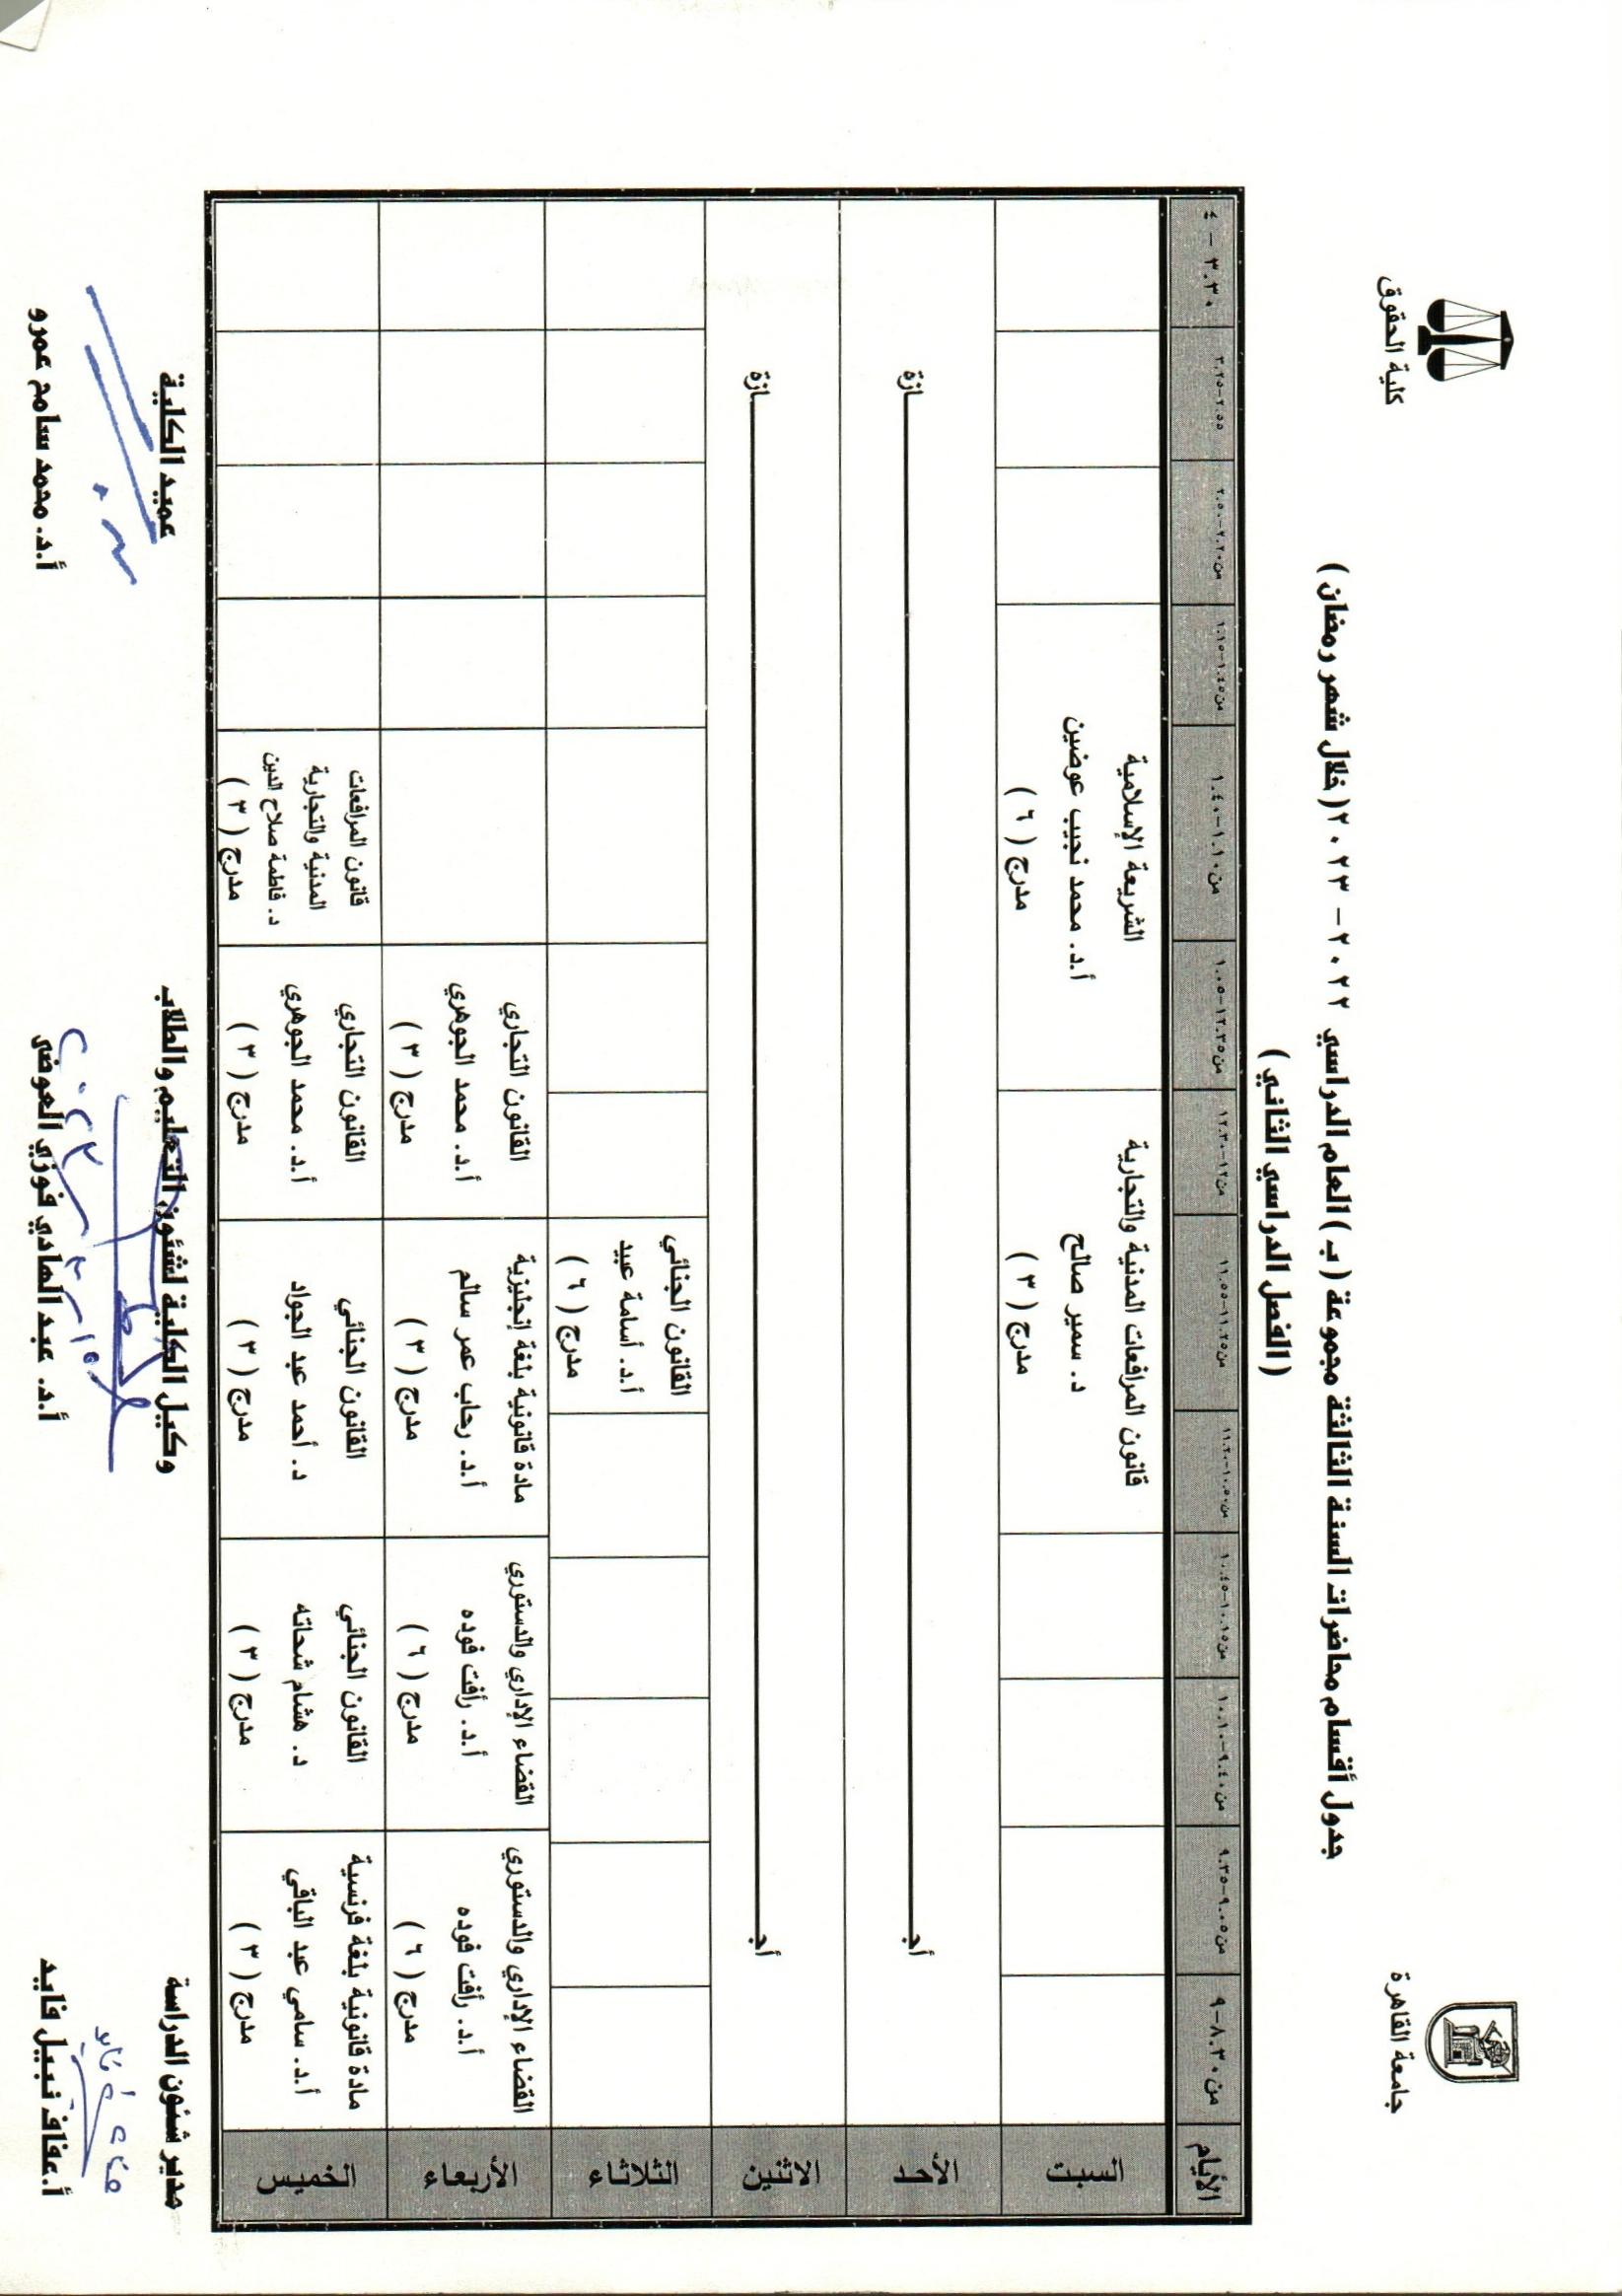 جامعة القاهرة
كلية الحقوق
جدول أقسام محاضرات السنة الثالثة مجموعة ( ب ) العام الدراسي ٢٠٢٢ – ٢٠٢٣ ( خلال شهر رمضان )
( الفصل الدراسي الثاني )
الأيام
من ٨.٣٠-٩
من ٩.٠٥-٩.٣٥
من ٩.٤٠-١٠.١٠
من ١٠.١٥-١٠.٤٥
من ١٠.٥٠-١١.٢٠
من ١١.٢٥-١١.٥٥
من ١٢-١٢.٣٠
من ١٢.٣٥-١.٠٥
من ١.١٠-١.٤٠
من ١.٤٥-١.١٥
من ٢.٢٠-٢.٥٠
٢.٥٥-٣.٢٥
٣.٣٠ – ٤
السبت
قانون المرافعات المدنية والتجارية
د. سمير صالح
مدرج ( ٣ )
الشريعة الإسلامية
أ.د. محمد نجيب عوضين
مدرج ( ٦ )
الأحد
أجـــــازة
الاثنين
أجـــــازة
الثلاثاء
القانون الجنائي
أ.د. أسامة عبيد
مدرج ( ٦ )
الأربعاء
القضاء الإداري والدستوري
أ.د. رأفت فوده
مدرج ( ٦ )
القضاء الإداري والدستوري
أ.د. رأفت فوده
مدرج ( ٦ )
مادة قانونية بلغة إنجليزية
أ.د. رحاب عمر سالم
مدرج ( ٣ )
القانون التجاري
أ.د. محمد الجوهري
مدرج ( ٣ )
الخميس
مادة قانونية بلغة فرنسية
أ.د. سامي عبد الباقي
مدرج ( ٣ )
القانون الجنائي
د. هشام شحاته
مدرج ( ٣ )
القانون الجنائي
د. أحمد عبد الجواد
مدرج ( ٣ )
القانون التجاري
أ.د. محمد الجوهري
مدرج ( ٣ )
قانون المرافعات
المدنية والتجارية
د. فاطمة صلاح الدين
مدرج ( ٣ )
مدير شئون الدراسة
أ.عفاف نبيل فايد
وكيل الكلية لشئون التعليم والطلاب
أ.د. عبد الهادي فوزي العوضي
عميد الكلية
أ.د. محمد سامح عمرو